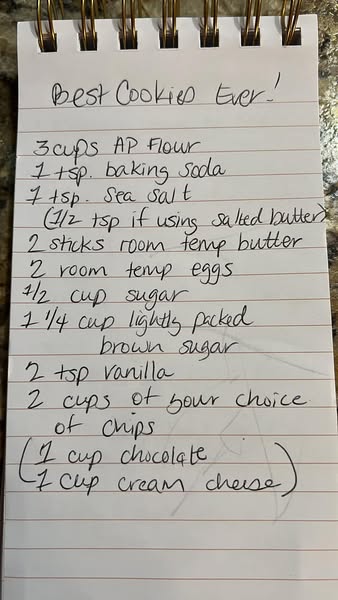 Best Cookies Ever!
3 cups AP Flour
1 tsp. baking soda
1 tsp. Sea Salt
(1/2 tsp if using salted butter)
2 sticks room temp butter
2 room temp eggs
1/2 cup sugar
1 1/4 cup lightly packed
brown sugar
2 tsp vanilla
2 cups of your choice
of chips
(1 cup chocolate
1 cup cream cheese)